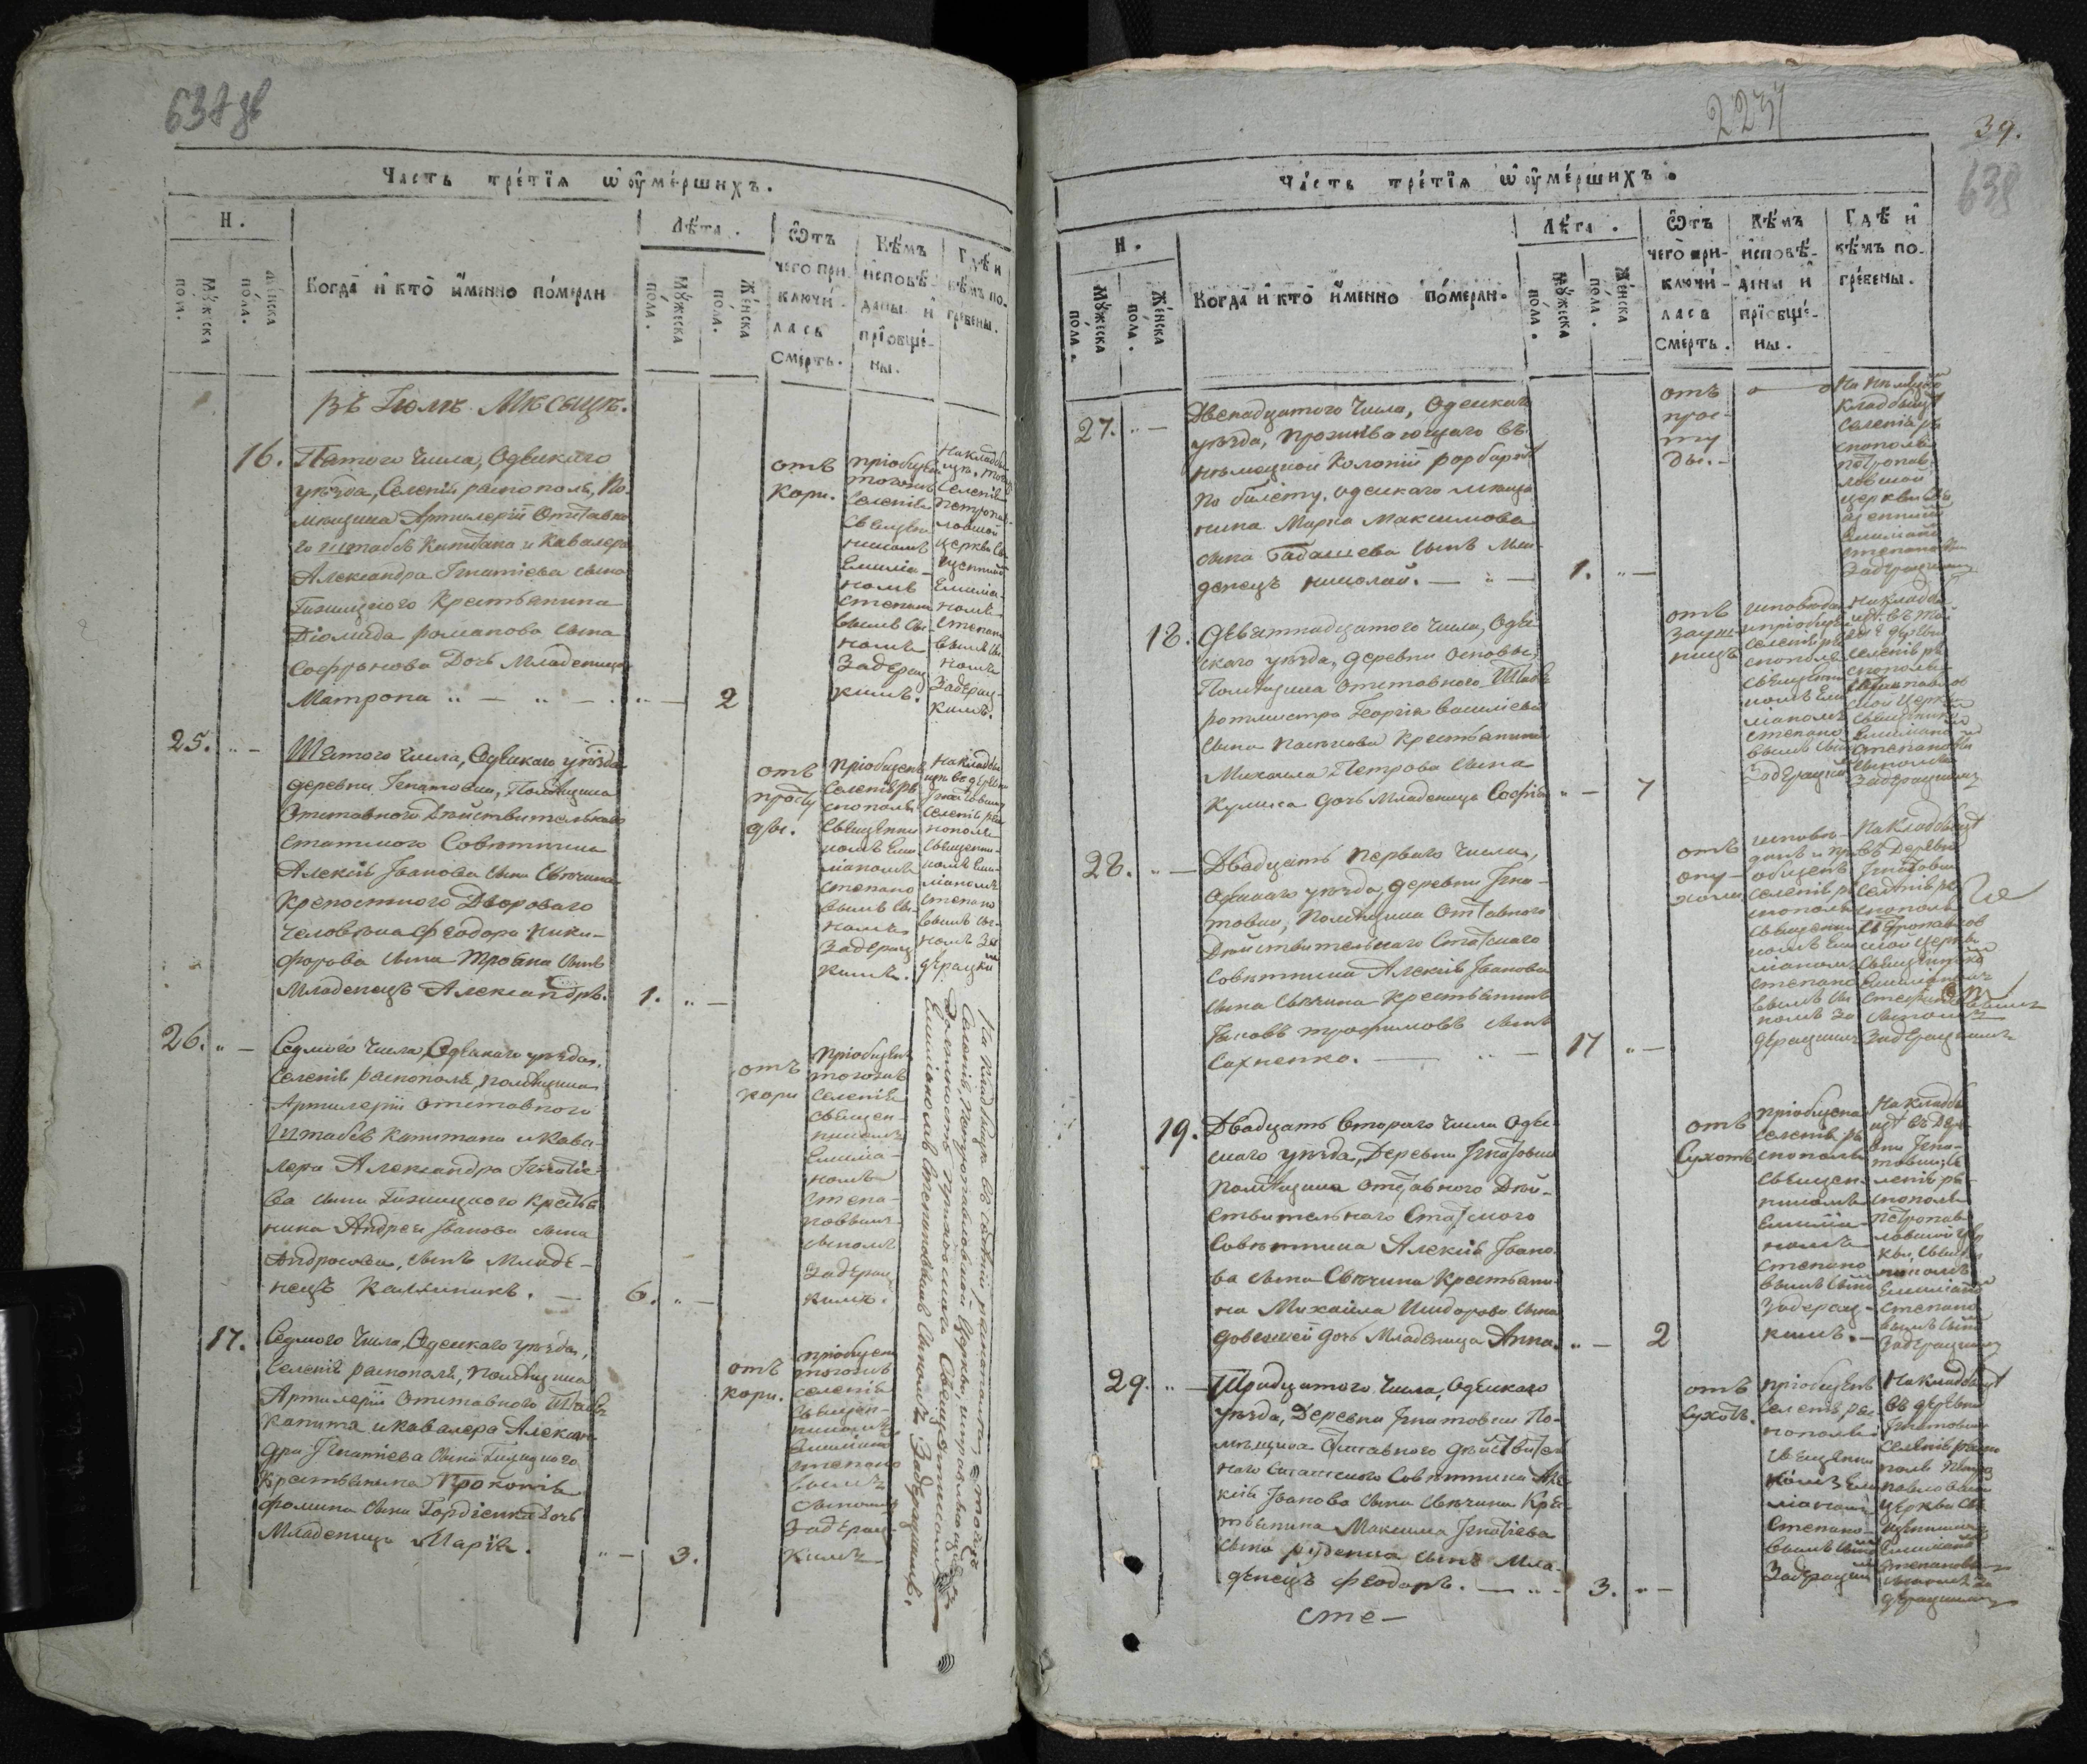 637 об
Часть третїѧ ѡ оумершихъ.
Н.
Мужеска пола.
Женска пола.
Когда и кто именно померли
Лѣта.
Мужеска пола.
Женска пола.
Ѿтъ чего приключилась смерть.
Кѣмъ исповѣданы и прїобщены.
Гдѣ и кѣмъ погребены.
Въ Іюлѣ Мѣсяцѣ.
16.
Пятого числа, Одескаго
уѣзда, Селенія распополя, По-
мѣщика Артилеріи Отставна-
го штабсъ Капитана и Кавалера
Александра Игнатіева сына
Гижицкого Крестьянина
Діомида романова сына
Софронова Дочь Младеница
Матрона
2
отъ
кори.
пріобщена
тогожъ
селенія
Священ-
никомъ
Емиліа-
номъ
Степано-
вымъ Сы-
номъ
Задерац-
кимъ.
На кладби-
щѣ, тогожъ
Селенія
Петропав-
ловской
церкви Свя-
щенникомъ
Емиліа-
номъ
Степано-
вымъ Сы-
номъ
Задерац-
кимъ.
25.
Шестого числа, Одескаго уѣзда
деревни Игнатовки, Помѣщика
Отставного Дѣйствительнаго
статского Совѣтника
Алексія Іванова сына Свѣчина
Крепостного Двороваго
человѣка Феодора Ники-
форова сына Трояна сынъ
Младенецъ Александръ.
1.
отъ
просту
ды.
пріобщенъ
Селенія ра-
спополя
Священни-
комъ Еми-
ліаномъ
Степано-
вымъ Сы-
номъ
Задерац-
кимъ.
На кладби-
щѣ въ деревни
Игнатовки
Селенія рас-
пополя
Священни-
комъ Еми-
ліаномъ
Степано-
вымъ Сы-
номъ За-
дерацки
26.
Седмого числа, Одескаго уѣзда,
Селенія распополя, помѣщика
Артилеріи Отставного
Штабсъ Капитана и Кава-
лера Александра Игнатіе-
ва сына Гижицкого Крестья-
нина Андрея Іванова сына
Андросова, сынъ Младе-
нецъ Каллиникъ.
6.
отъ
кори
пріобщенъ
тогожъ
Селенія
Священ-
никомъ
Емиліа-
номъ
Степа-
новымъ
Сыномъ
Задерац-
кимъ.
На кладбищѣ въ селеніи распополя, Тогожъ
Селенія, Петропавловской Церкви, исправляющимъ
Должность приходскаго Священникомъ
Емиліаномъ Степановымъ Сыномъ Задерацкимъ.
17.
Седмого числа, Одескаго уѣзда,
Селенія распополя, помѣщика
Артилеріи Отставного Штабсъ
капита и кавалера Александ-
дра Игнатіева Сына Гижицкого
Крестьянина Прокопія
Фомина сына Гордіенка Дочь
Младеница Марія.
3.
отъ
кори.
пріобщена
тогожъ
селенія
Священ-
никомъ
Емиліано
Степано
вымъ
Сыномъ
Задерац-
кимъ
2237
39.
638
Часть третїѧ ѡ оумершихъ.
Н.
Мужеска пола.
Женска пола.
Когда и кто именно померли.
Лѣта.
Мужеска пола.
Женска пола.
Ѿтъ чего приключилась смерть.
Кѣмъ исповѣданы и прїобщены.
Гдѣ и кѣмъ погребены.
27.
Двенадцатого числа, Одескаго
уѣзда, проживающаго въ
немецкой Колоніи рорбахъ
по билету, одескаго мѣща-
нина Марка Максимова
сына Гадашева сынъ Мла-
денецъ николай.
1.
отъ
прос-
ту
ды.
На нѣмецкомъ
кладбищѣ
селенія ра-
спополя
петропав-
ловской
церкви Свя-
щенникъ
Емиліанъ
Степановъ
Задерацкій
18.
Девятнадцатого числа, Оде-
скаго уѣзда, деревни Основы,
Помѣщика отставного Штабсъ
ротмистра Георгія василіева
сына Пасѣкова крестьянина
Михаила Петрова сына
Кулика дочь младеница Софія
7
отъ
заушни
ницъ
исповѣдана
и пріобщена
селенія ра-
спополя
священни-
комъ Еми-
ліаномъ
степано-
вымъ сыном
Задерацкимъ
На кладби-
щѣ въ той
же деревни
селенія ра-
спополя
Петропавлов-
ской церкви
Священникъ
Емиліаномъ
Степановымъ
сыномъ
Задерацкимъ
28.
Двадцать первого числа,
Одескаго уѣзда, деревни Игна-
товки, помѣщика Отставного
Дѣйствительнаго Статского
Совѣтника Алексія Іванова
сына Свѣчина Крестьянинъ
Іаковъ трофимовъ сынъ
Сахненко.
17
отъ
опу-
холи
исповѣ-
данъ и прі-
общенъ
селенія ра-
спополя
священни-
комъ Еми-
ліаномъ
степано-
вымъ сы-
номъ За-
дерацкимъ
На кладбищѣ
въ деревни
Игнатовки
селенія ра-
спополя
Петропавлов-
ской церкви
священникъ
Емиліаномъ
Степановымъ
сыномъ
Задерацкимъ
19.
Двадцать второго числа Оде-
скаго уѣзда, Деревни Игнатовки
помѣщика Отставного Дѣй-
ствительнаго Статского
Совѣтника Алексія Івано-
ва сына Свѣчина Крестьяни-
на Михаила Исидорова сына
довгашей дочь Младеница Анна.
2
отъ
Сухотъ
пріобщена
селенія ра-
спополя
Священ-
никомъ
Емилїа-
номъ
Степано-
вымъ сыно
Задерац-
кимъ.
На кладби-
щѣ въ дере-
вни Игна-
товки, се-
ленія ра-
спополя
петропав-
ловской цер-
кви, священ-
никомъ
Емиліано
Степано-
вымъ сыно
Задерацкимъ
29.
Тридцатого числа, Одескаго
уѣзда, Деревни Игнатовки По-
мѣщика Отставного дѣйствител-
наго статского Совѣтника Але-
ксія Іванова сына Свѣчина Кре-
стьянина Максима Игнатіева
сына руденка сынъ Мла-
денецъ Феодоръ.
3.
отъ
Сухотъ.
пріобщенъ
Селенія рас-
пополя
Священни
комъ Еми
ліаномъ
Степано-
вымъ сыно
Задерацки
На кладбищѣ
въ деревни
Игнатовки
селенія распо-
поля Петро-
павловской
церкви Свя-
щенникомъ
Емиліаномъ
Степановымъ
сыномъ За-
дерацкимъ
Сте-